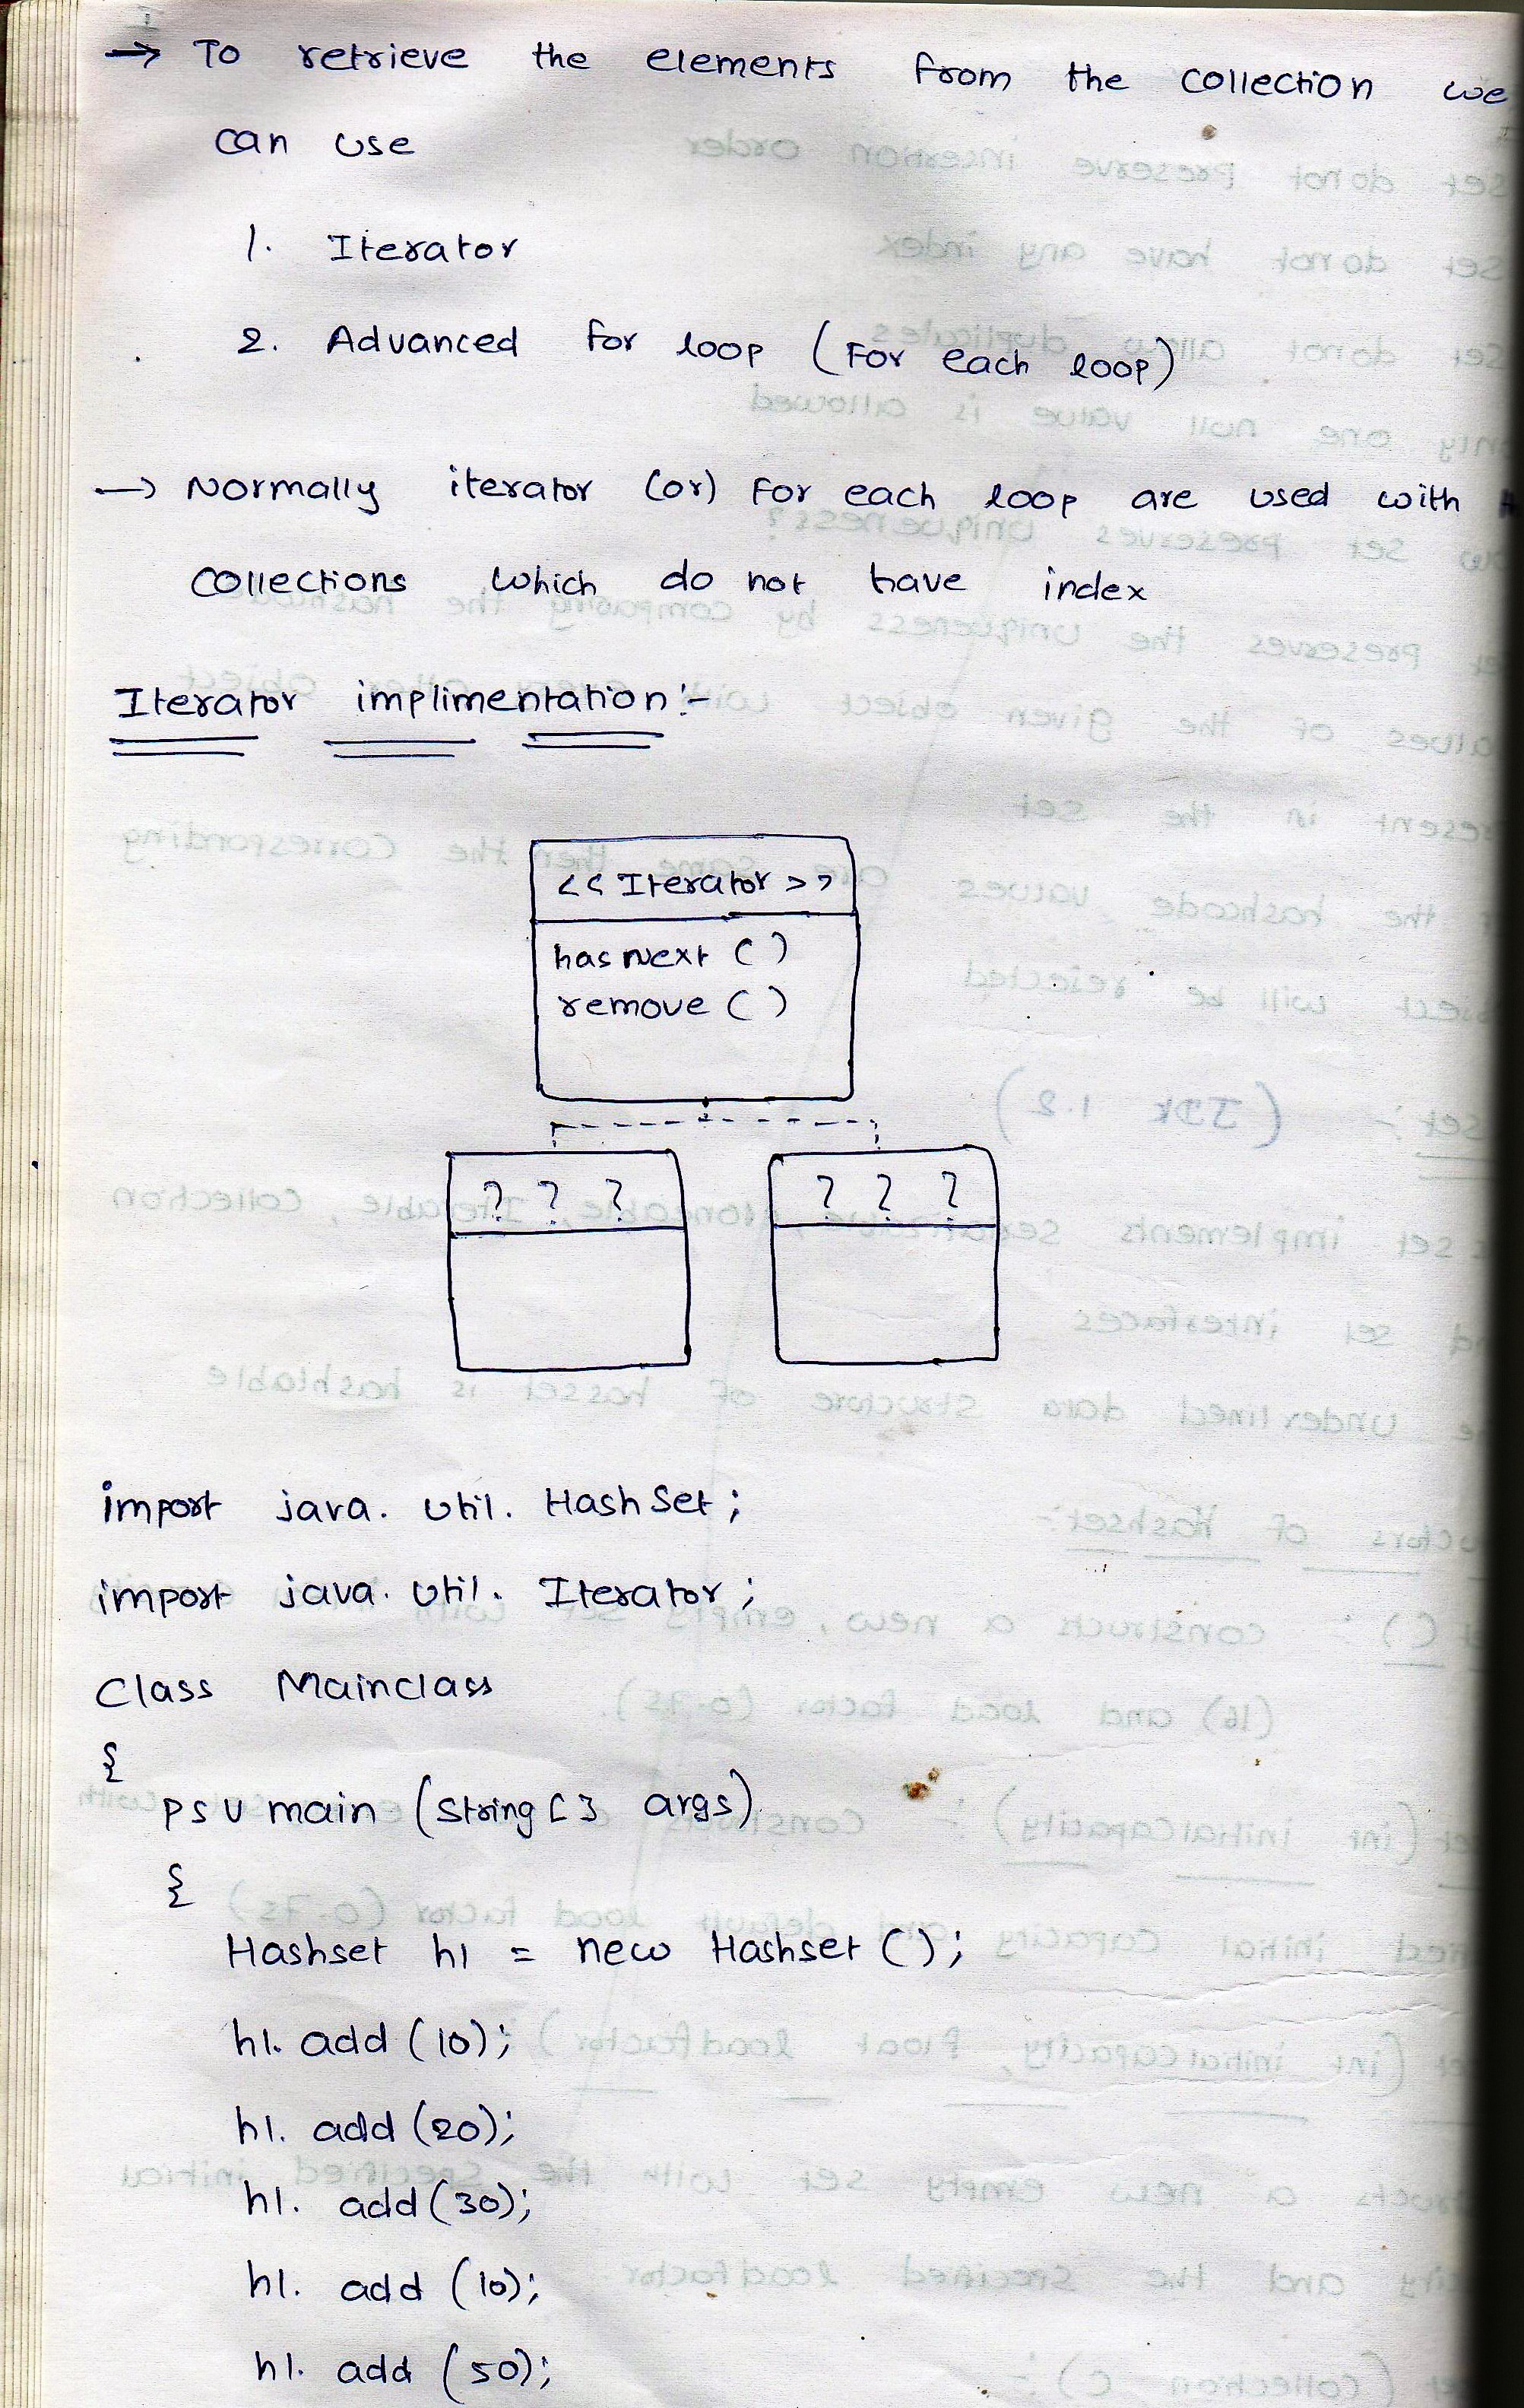 → To retrieve the elements from the collection we
can use
1. Iterator
2. Advanced for loop (For each loop)
→ Normally iterator (or) for each loop are used with
collections which do not have index
Iterator implimentation:-
<< Iterator >>
hasNext ( )
remove ( )
? ? ?
? ? ?
import java. util. HashSet;
import java. util. Iterator;
Class Mainclass
{
psv main (String [ ] args)
{
Hashset h1 = new Hashset ( );
h1. add (10);
h1. add (20);
h1. add (30);
h1. add (10);
h1. add (50);